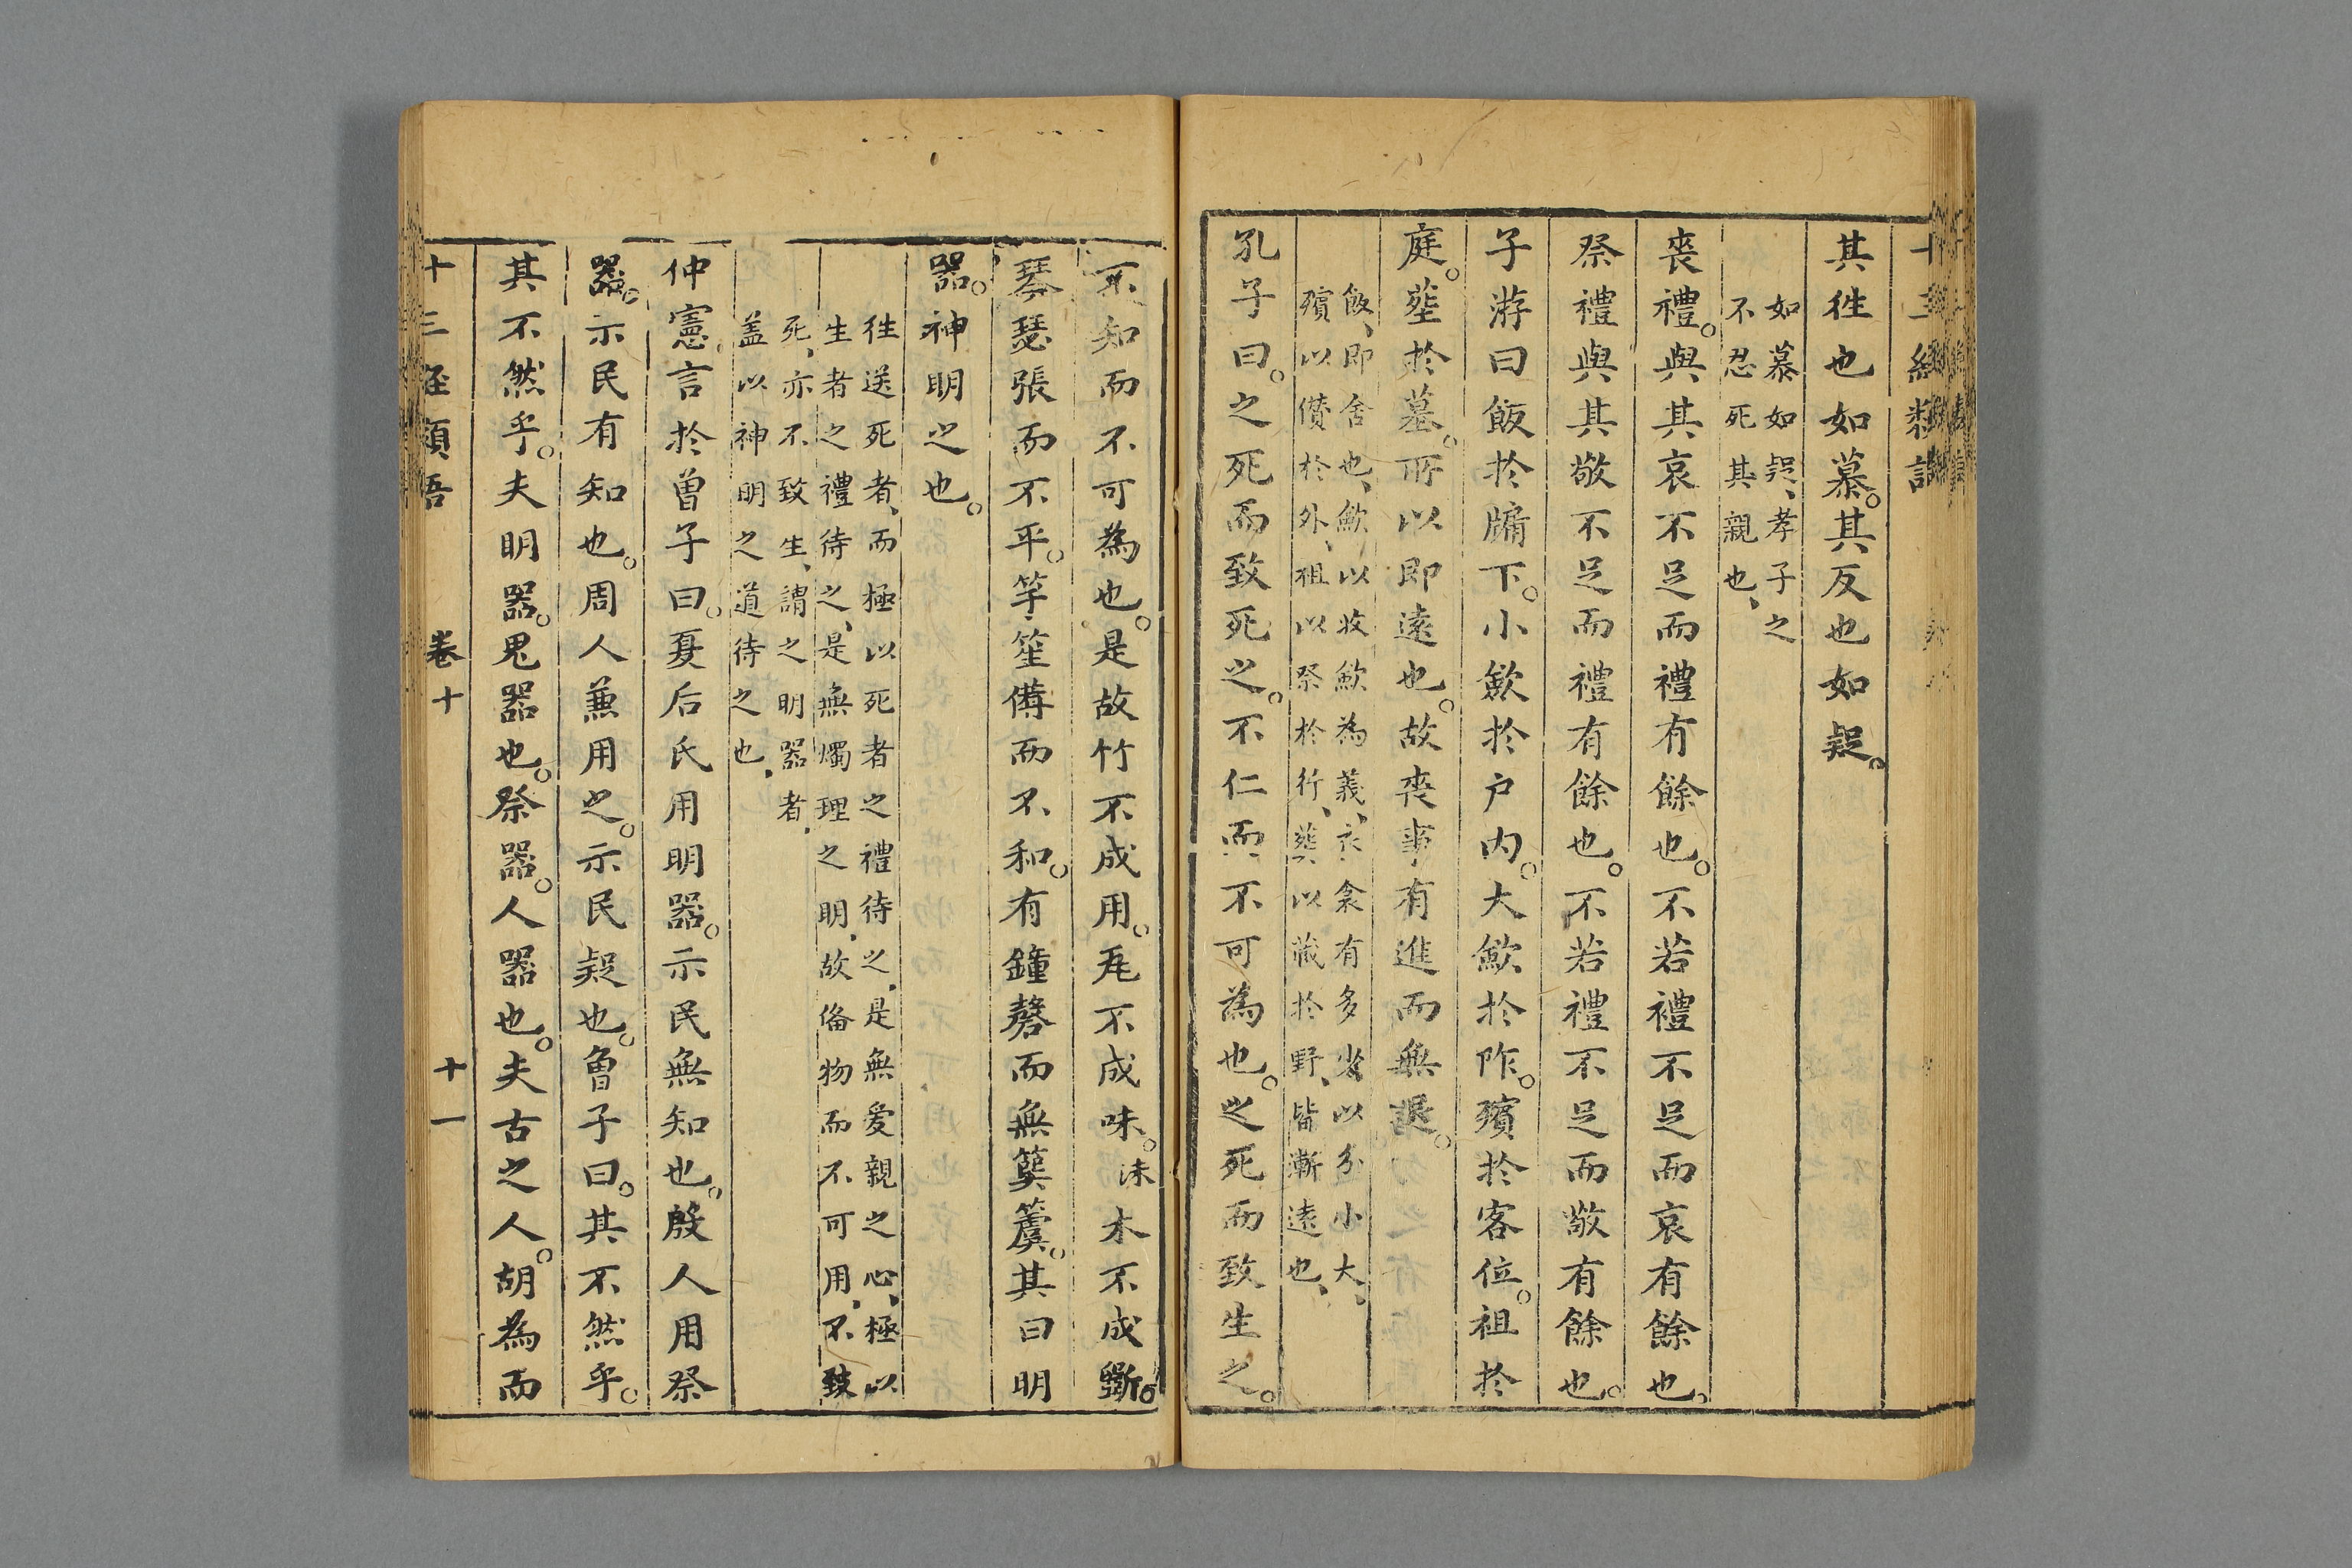 其徃也如慕。其反也如疑。
如慕如疑、孝子之
不忍死其親也、
喪禮。與其哀不足而禮有餘也。不若禮不足而哀有餘也。
祭禮與其敬不足而禮有餘也。不若禮不足而敬有餘也。
子游曰飯於牖下。小歛於户内。大歛於阼。殯於客位。祖於
庭。塟於墓。所以即遠也。故喪事有進而無退。
飯、即含也、歛以收歛為義、衣衾有多少以分小大、
殯以儹於外、祖以祭於行、塟以藏於野、皆漸遠也、
孔子曰。之死而致死之。不仁而不可為也。之死而致生之。
不知而不可為也。是故竹不成用。瓦不成味。沬木不成斲。
琴瑟張而不平。竽笙備而不和。有鐘磬而無簨簴。其曰明
器。神明之也。
徃送死者、而極以死者之禮待之、是無愛親之心、極以
生者之禮待之、是無燭理之明、故俻物而不可用、不致
死、亦不致生、謂之明器者、
盖以神明之道待之也、
仲憲言於曾子曰。夏后氏用明器。示民無知也。殷人用祭
器。示民有知也。周人兼用之。示民疑也。曾子曰。其不然乎。
其不然乎。夫明器。鬼器也。祭器。人器也。夫古之人。胡為而
十三經類語 卷十 十一